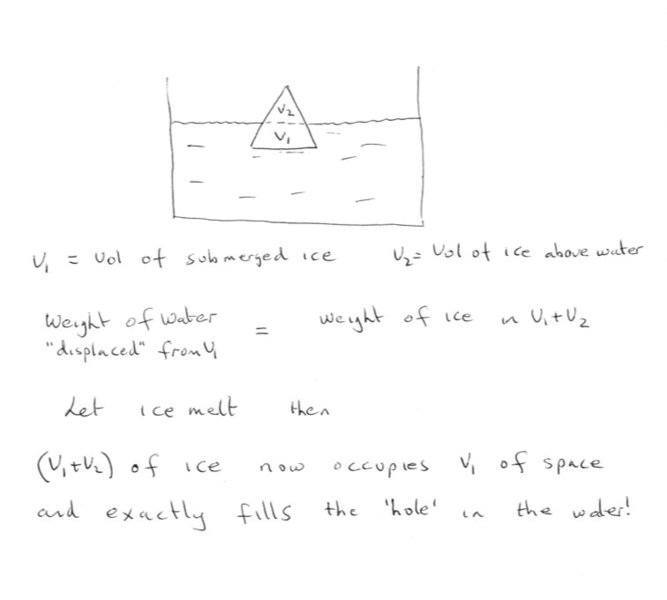 V2
V1
V1 = Vol of submerged ice V2 = Vol of ice above water
Weight of water = weight of ice in V1+V2
"displaced" from V1
Let ice melt then
(V1+V2) of ice now occupies V1 of space
and exactly fills the 'hole' in the water!